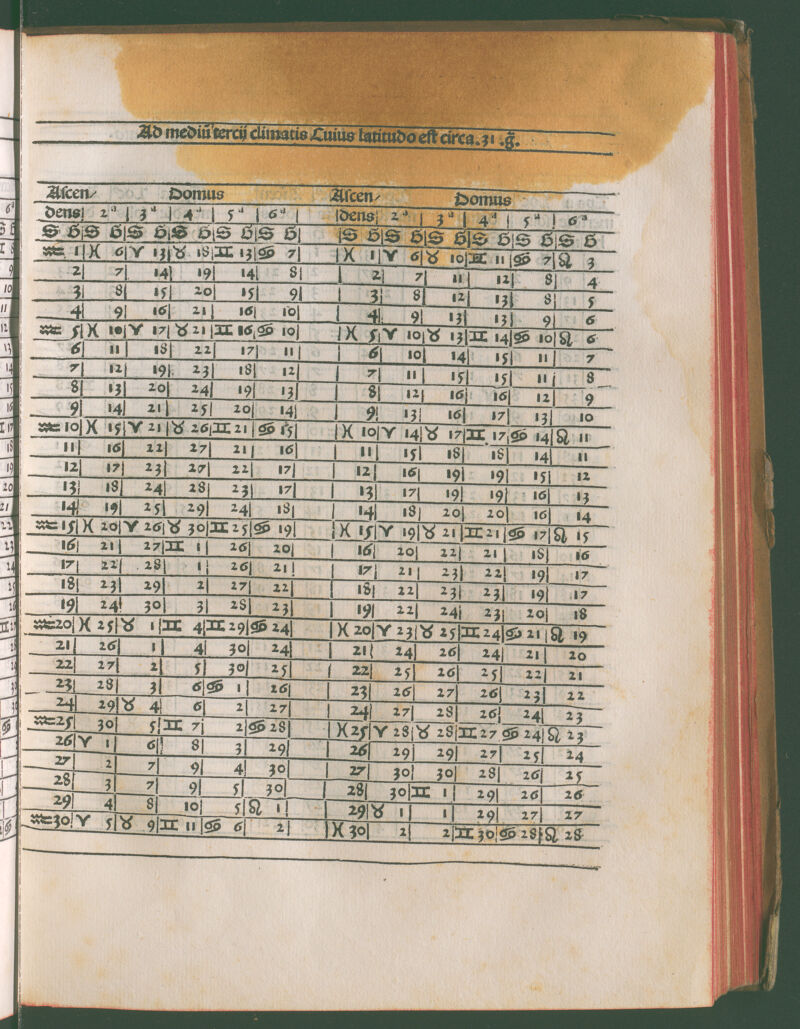 Ad mediũ tercij climatis Cuius latitudo est circa .31 .g̃.
Ascen/ Domus Ascen/ Domus
dens 2ᵃ 3ᵃ 4ᵃ 5ᵃ 6ᵃ dens 2ᵃ 3ᵃ 4ᵃ 5ᵃ 6ᵃ
S G S G S G S G S G S G S G S G S G S G S G S G
♒ 1 ♓ 6 ♈ 13 ♉ 18 ♊ 13 ♋ 7 ♓ 1 ♈ 6 ♉ 10 ♊ 11 ♋ 7 ♌ 3
2 7 14 19 14 8 2 7 11 12 8 4
3 8 15 20 15 9 3 8 12 13 8 5
4 9 16 21 16 10 4 9 13 13 9 6
♒ 5 ♓ 10 ♈ 17 ♉ 21 ♊ 16 ♋ 10 ♓ 5 ♈ 10 ♉ 13 ♊ 14 ♋ 10 ♌ 6
6 11 18 22 17 11 6 10 14 15 11 7
7 12 19 23 18 12 7 11 15 15 11 8
8 13 20 24 19 13 8 12 16 16 12 9
9 14 21 25 20 14 9 13 16 17 13 10
♒ 10 ♓ 15 ♈ 21 ♉ 26 ♊ 21 ♋ 15 ♓ 10 ♈ 14 ♉ 17 ♊ 17 ♋ 14 ♌ 11
11 16 22 27 21 16 11 15 18 18 14 11
12 17 23 27 22 17 12 16 19 19 15 12
13 18 24 28 23 17 13 17 19 19 16 13
14 19 25 29 24 18 14 18 20 20 16 14
♒ 15 ♓ 20 ♈ 26 ♉ 30 ♊ 25 ♋ 19 ♓ 15 ♈ 19 ♉ 21 ♊ 21 ♋ 17 ♌ 15
16 21 27 ♊ 1 26 20 16 20 22 21 18 16
17 22 28 1 26 21 17 21 23 22 19 17
18 23 29 2 27 22 18 22 23 23 19 17
19 24 30 3 28 23 19 22 24 23 20 18
♒ 20 ♓ 25 ♉ 1 ♊ 4 ♊ 29 ♋ 24 ♓ 20 ♈ 23 ♉ 25 ♊ 24 ♋ 21 ♌ 19
21 26 1 4 30 24 21 24 26 24 21 20
22 27 2 5 30 25 22 25 26 25 22 21
23 28 3 6 ♋ 1 26 23 26 27 26 23 22
24 29 ♉ 4 6 2 27 24 27 28 26 24 23
♒ 25 30 5 ♊ 7 2 ♋ 28 ♓ 25 ♈ 28 ♉ 28 ♊ 27 ♋ 24 ♌ 23
26 ♈ 1 6 8 3 29 26 29 29 27 25 24
27 2 7 9 4 30 27 30 30 28 26 25
28 3 7 9 5 30 28 30 ♊ 1 29 26 26
29 4 8 10 5 ♌ 1 29 ♉ 1 1 29 27 27
♒ 30 ♈ 5 ♉ 9 ♊ 11 ♋ 6 2 ♓ 30 2 2 ♊ 30 ♋ 28 ♌ 28